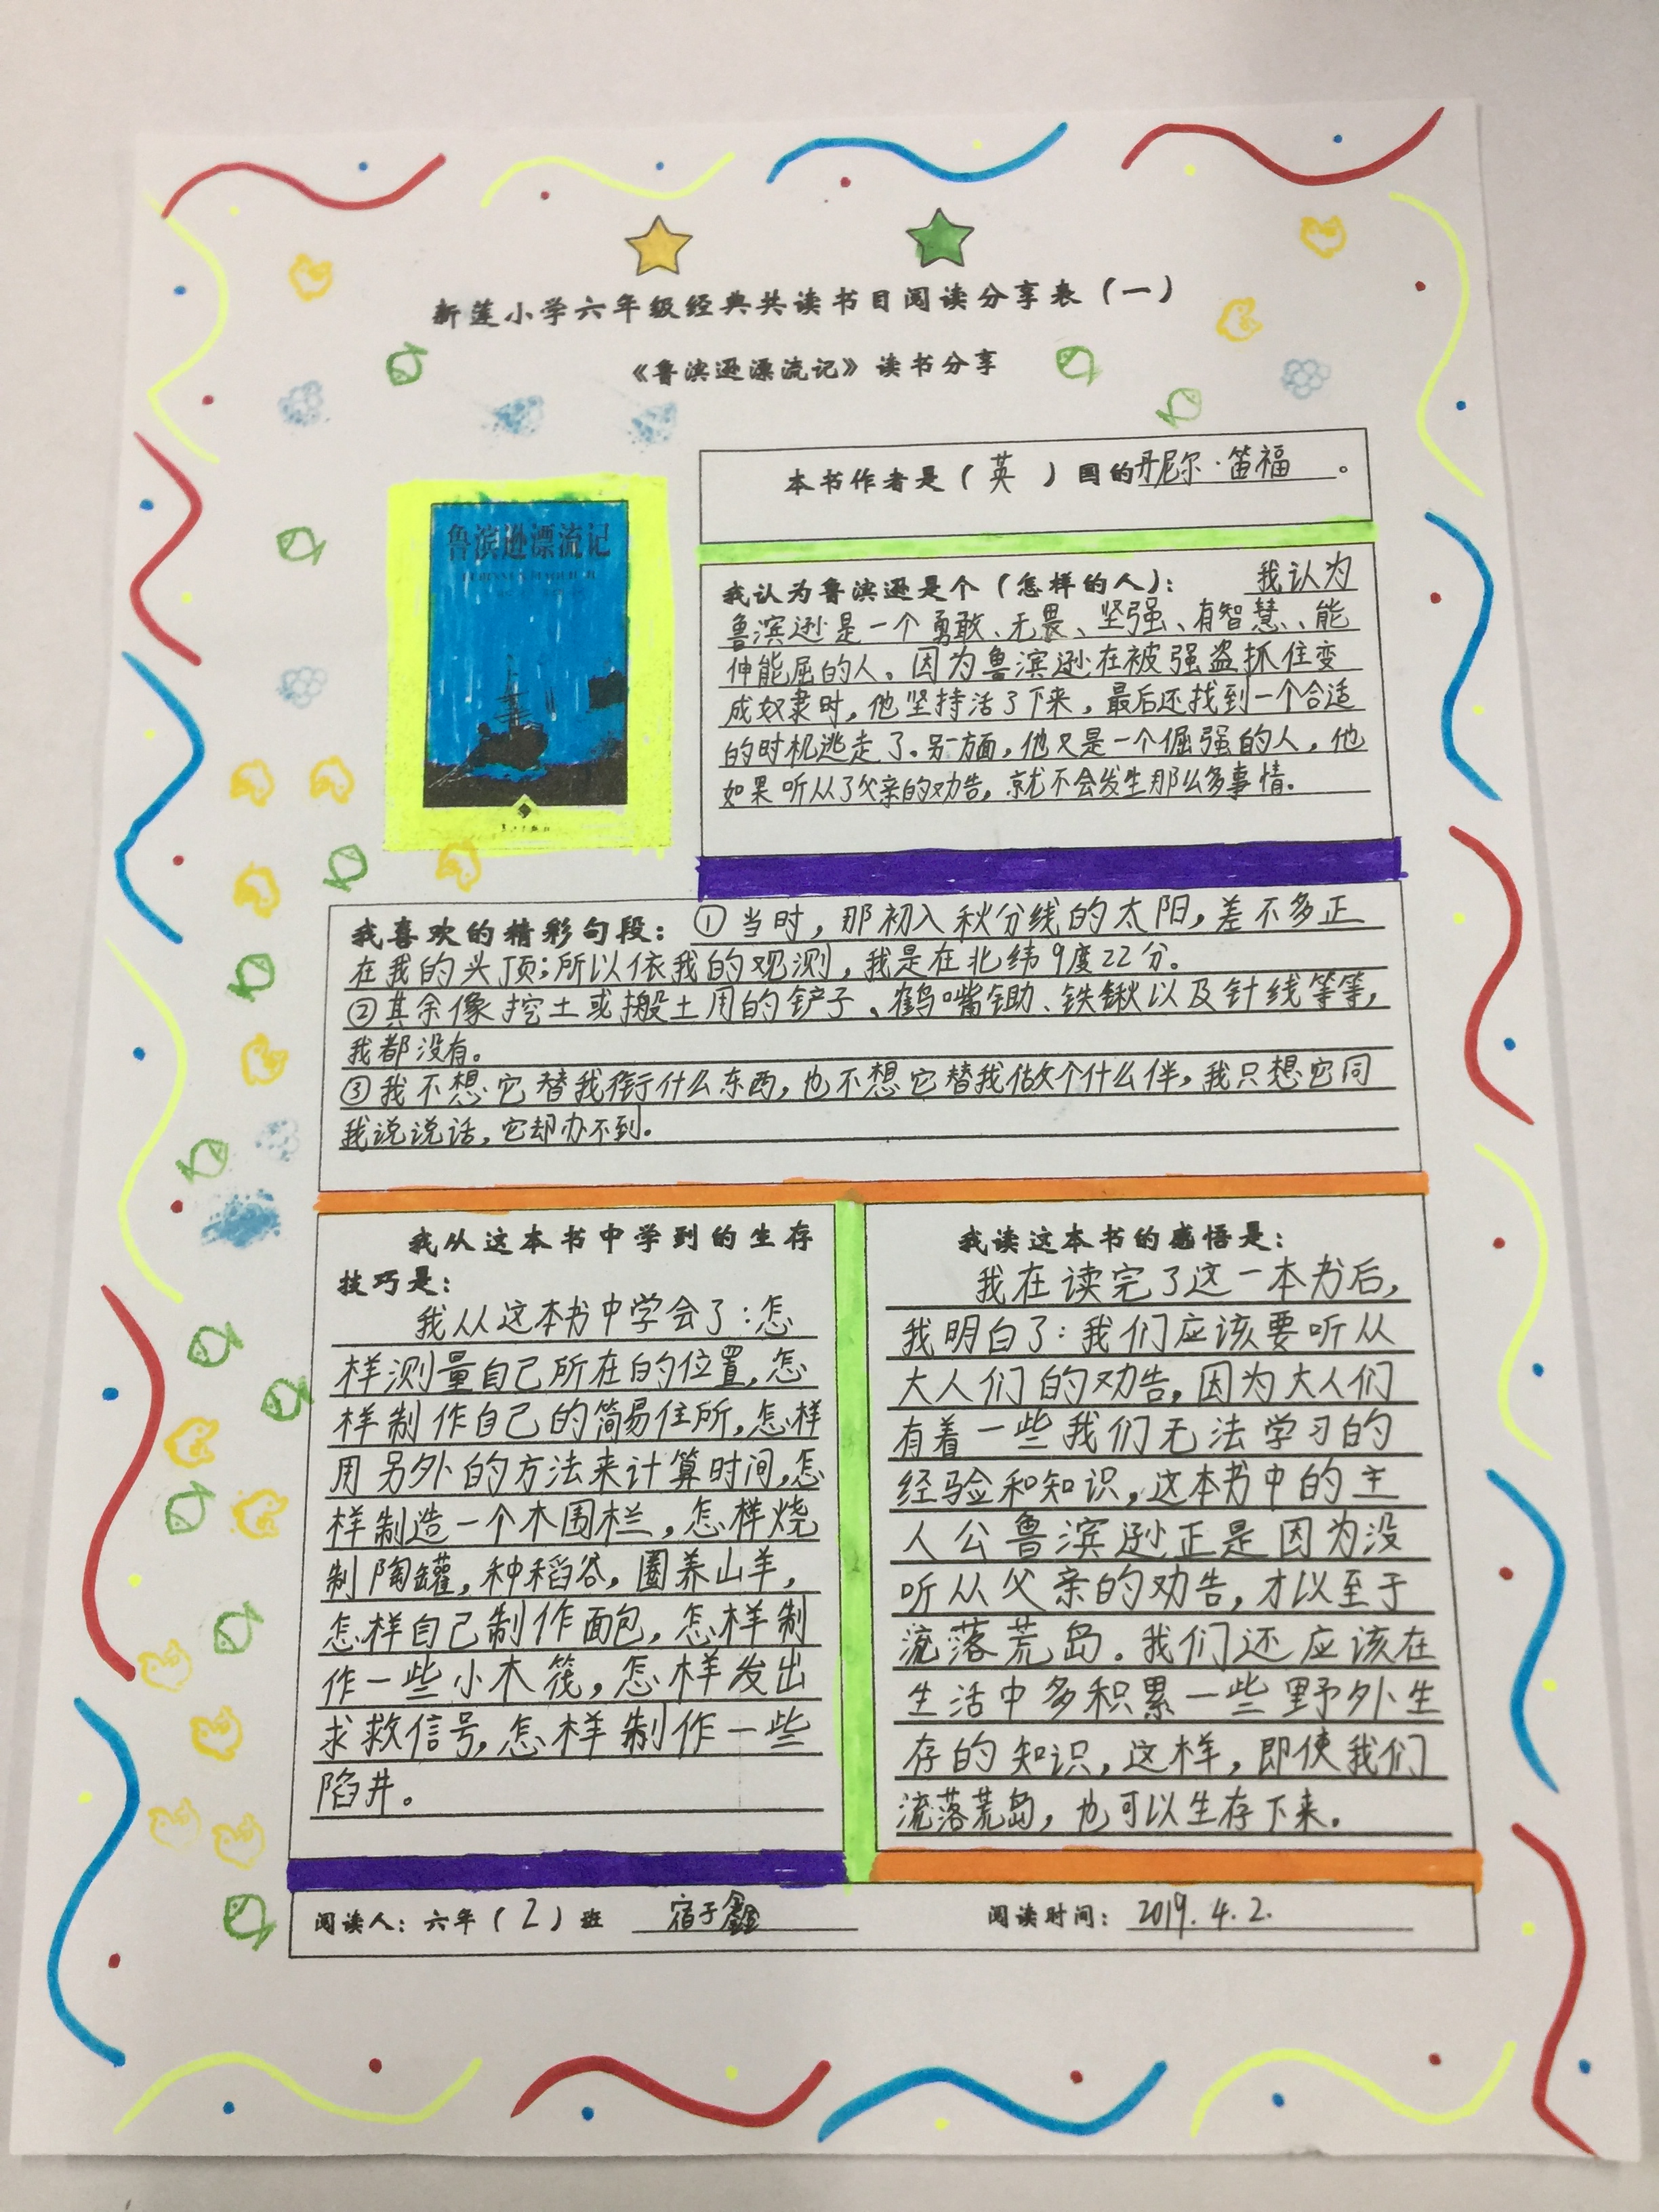 新莲小学六年级经典共读书目阅读分享表（一）
《鲁滨逊漂流记》读书分享
鲁滨逊漂流记
本书作者是（英）国的丹尼尔·笛福。
我认为鲁滨逊是个（怎样的人）：我认为
鲁滨逊是一个勇敢、无畏、坚强、有智慧、能
伸能屈的人。因为鲁滨逊在被强盗抓住变
成奴隶时，他坚持活了下来，最后还找到一个合适
的时机逃走了。另一方面，他又是一个倔强的人，他
如果听从了父亲的劝告，就不会发生那么多事情。
我喜欢的精彩句段：①当时，那初入秋分线的太阳，差不多正
在我的头顶；所以依我的观测，我是在北纬9度22分。
②其余像挖土或搬土用的铲子、鹤嘴锄、铁锹以及针线等等，
我都没有。
③我不想它替我衔什么东西，也不想它替我做个什么伴，我只想它同
我说说话，它却办不到。
我从这本书中学到的生存
技巧是：
我从这本书中学会了：怎
样测量自己所在的位置，怎
样制作自己的简易住所，怎样
用另外的方法来计算时间，怎
样制造一个木围栏，怎样烧
制陶罐，种稻谷，圈养山羊，
怎样自己制作面包，怎样制
作一些小木筏，怎样发出
求救信号，怎样制作一些
陷井。
我读这本书的感悟是：
我在读完了这一本书后，
我明白了：我们应该要听从
大人们的劝告，因为大人们
有着一些我们无法学习的
经验和知识，这本书中的主
人公鲁滨逊正是因为没
听从父亲的劝告，才以至于
流落荒岛。我们还应该在
生活中多积累一些野外生
存的知识，这样，即使我们
流落荒岛，也可以生存下来。
阅读人：六年（2）班 宿于鑫
阅读时间：2019.4.2.